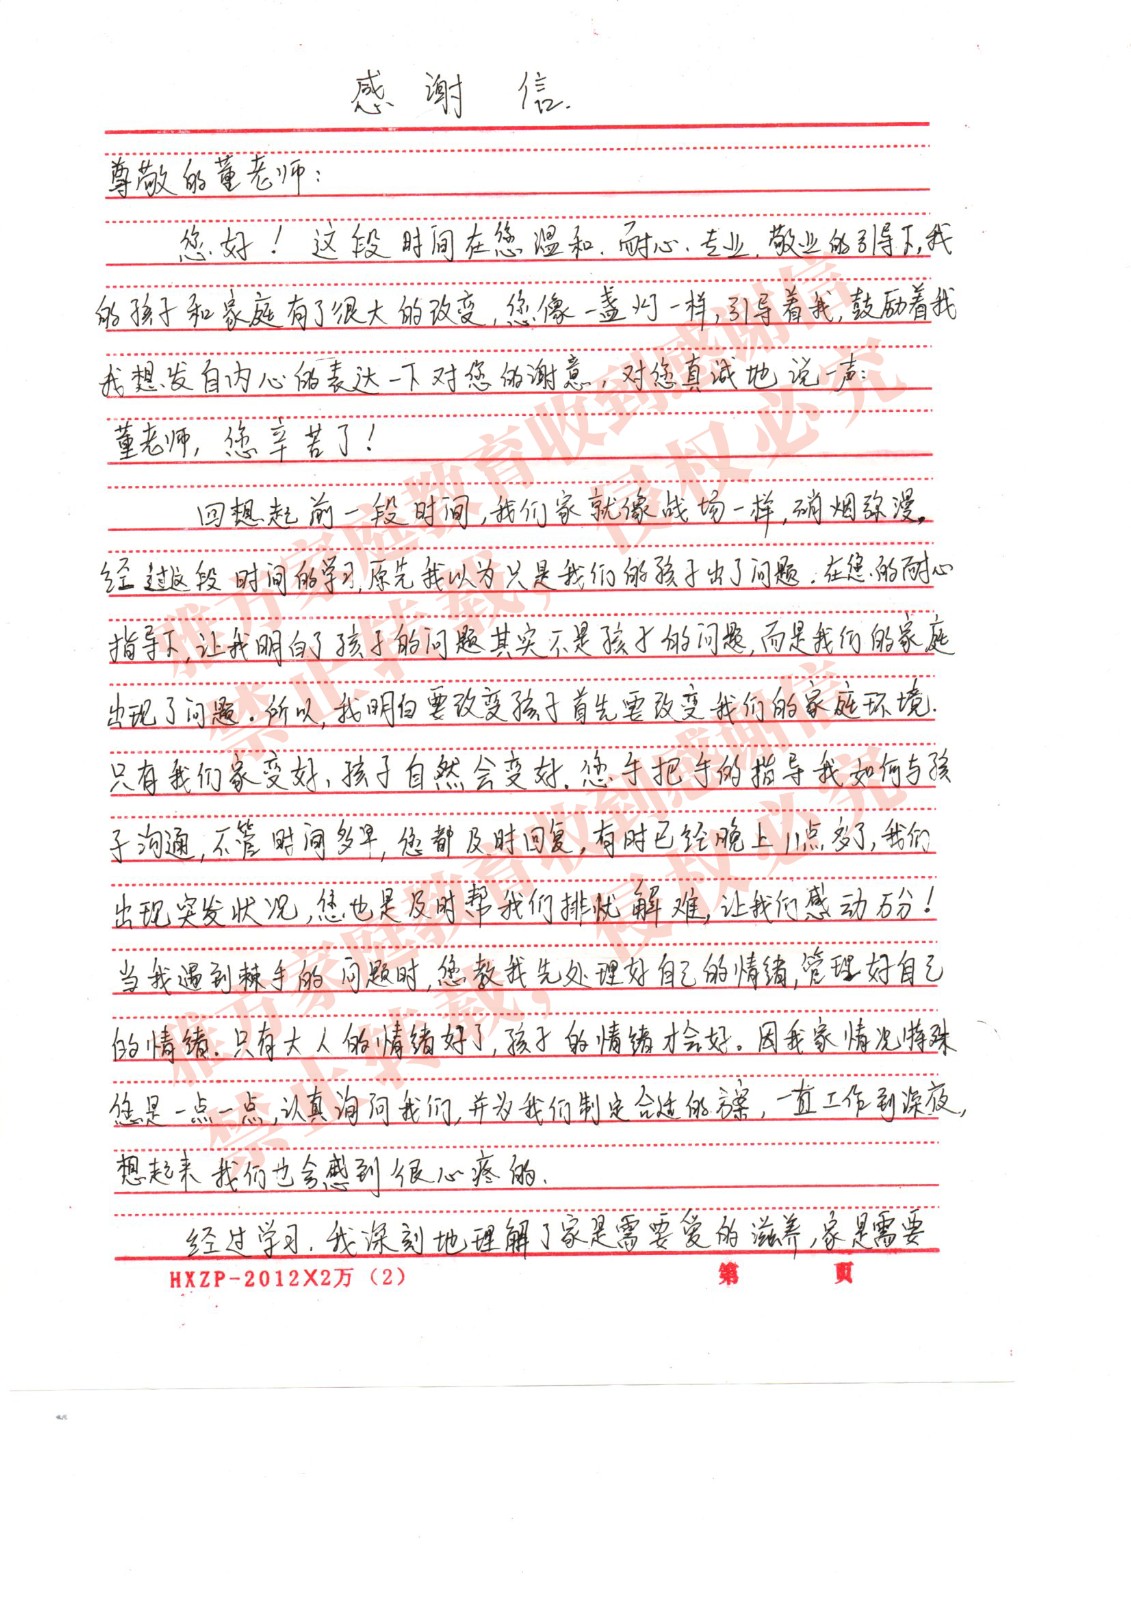 感谢信.
尊敬的董老师：
您好！这段时间在您温和.耐心.专业.敬业的引导下,我
的孩子和家庭有了很大的改变,您像一盏灯一样,引导着我,鼓励着我
我想发自内心的表达一下对您的谢意,对您真诚地说一声:
董老师,您辛苦了！
回想起前一段时间,我们家就像战场一样,硝烟弥漫。
经过这段时间的学习,原先我以为只是我们的孩子出了问题.在您的耐心
指导下,让我明白了孩子的问题其实不是孩子的问题,而是我们的家庭
出现了问题。所以,我明白要改变孩子首先要改变我们的家庭环境.
只有我们家变好,孩子自然会变好.您手把手的指导我如何与孩
子沟通,不管时间多早,您都及时回复,有时已经晚上11点多了,我们
出现突发状况,您也是及时帮我们排忧解难,让我们感动万分！
当我遇到棘手的问题时,您教我先处理好自己的情绪,管理好自己
的情绪.只有大人的情绪好了,孩子的情绪才会好。因我家情况特殊
您是一点一点,认真询问我们,并为我们制定合适的方案,一直工作到深夜,
想起来我们也会感到很心疼的.
经过学习.我深刻地理解了家是需要爱的滋养,家是需要
HXZP-2012X2万（2）　第　页
雅方家庭教育收到感谢信
禁止转载，侵权必究
雅方家庭教育收到感谢信
禁止转载，侵权必究